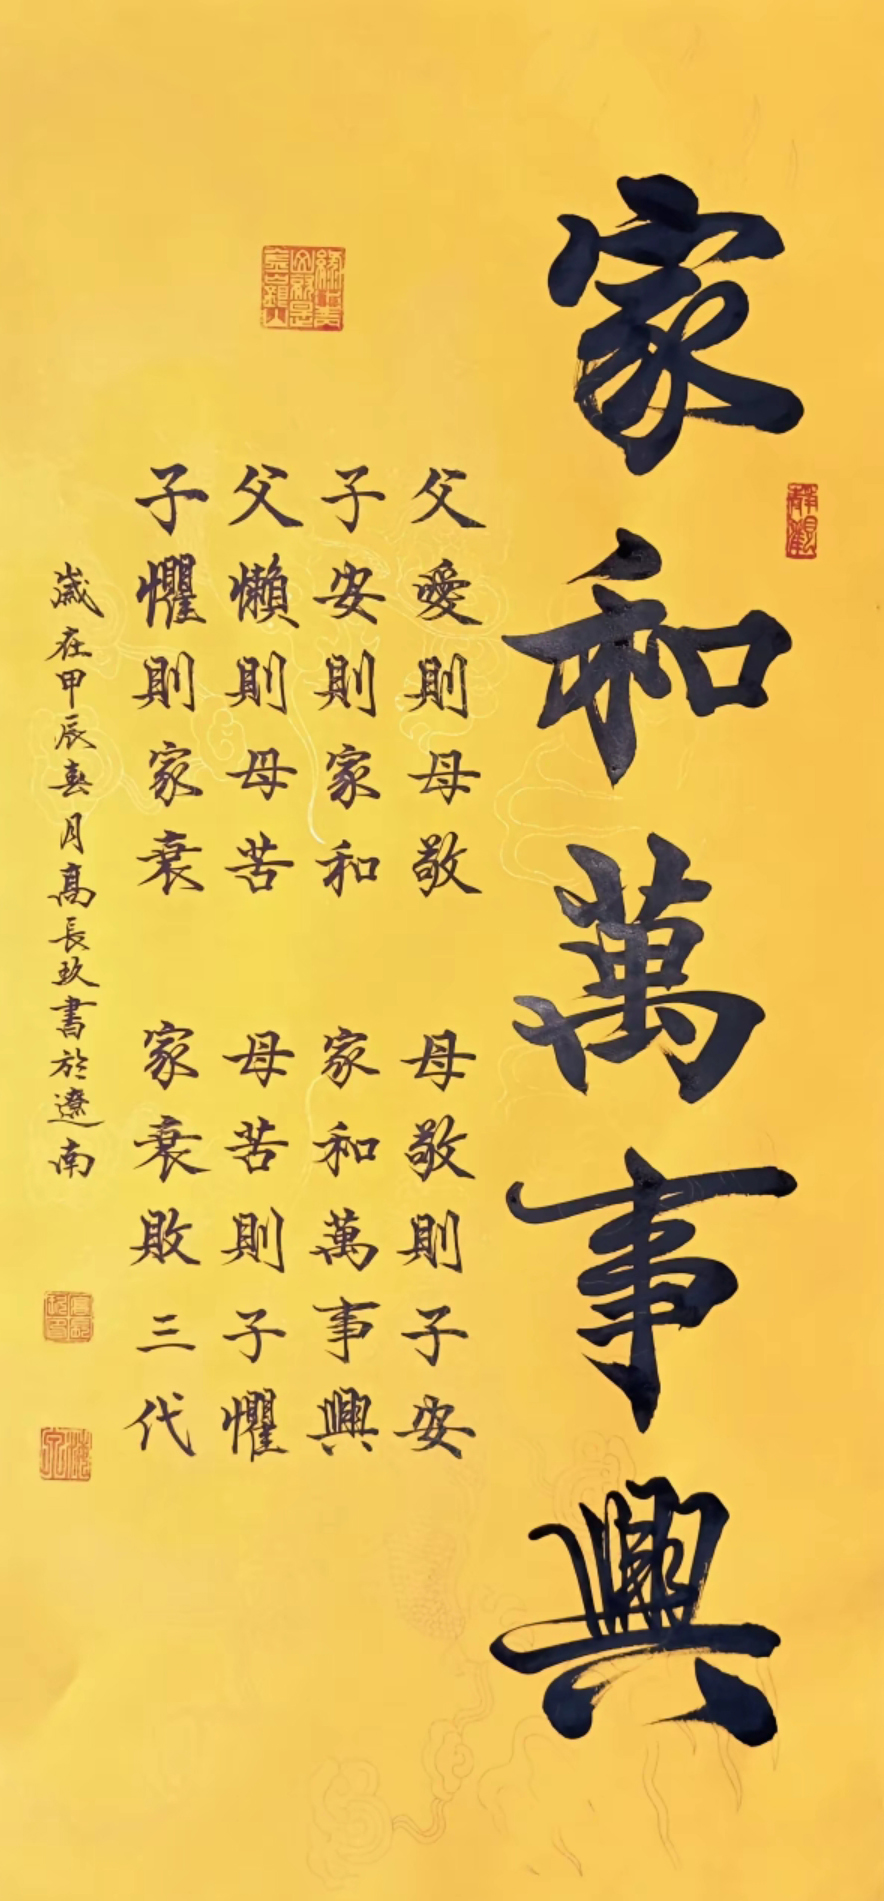 家和萬事興
父愛則母敬 母敬則子安
子安則家和 家和萬事興
父懶則母苦 母苦則子懼
子懼則家衰 家衰敗三代
歲在甲辰春月高長玖書於遼南
靜觀